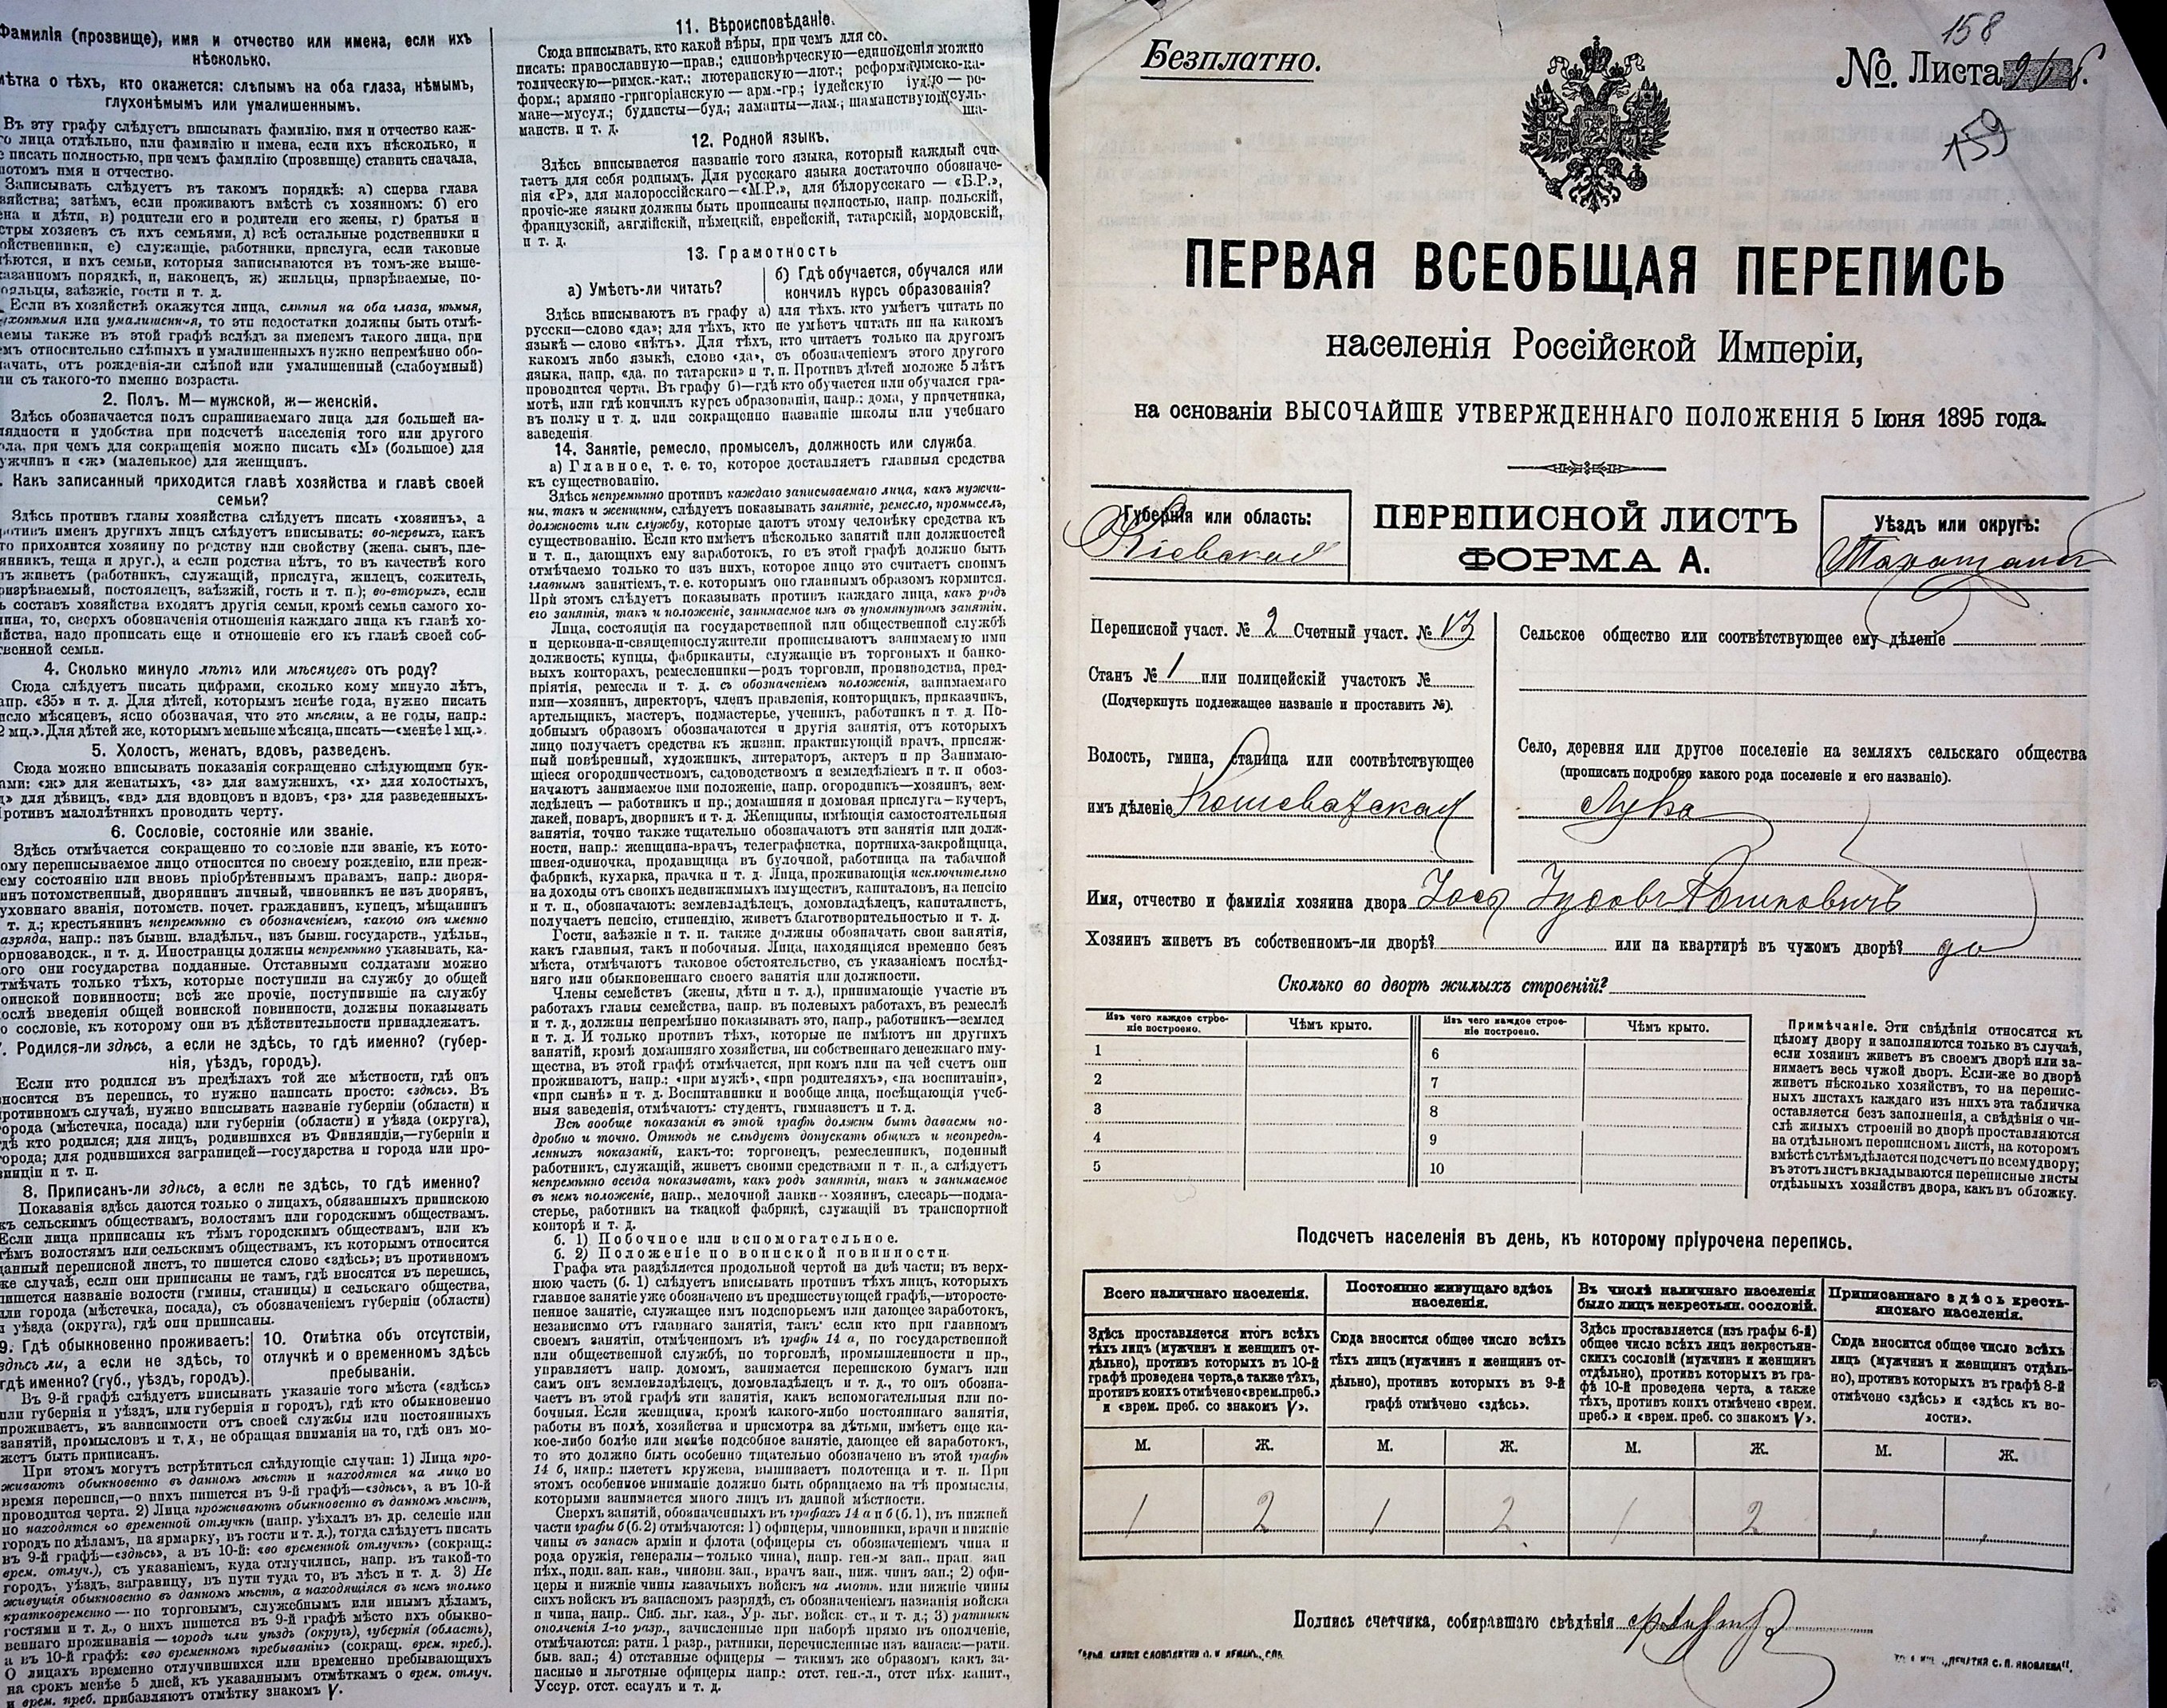 Фамилія (прозвище), имя и отчество или имена, если ихъ
нѣсколько.
мѣтка о тѣхъ, кто окажется: слѣпымъ на оба глаза, нѣмымъ,
глухонѣмымъ или умалишеннымъ.
Въ эту графу слѣдуетъ вписывать фамилію, имя и отчество каж-
го лица отдѣльно, или фамилію и имена, если ихъ нѣсколько, и
писать полностью, при чемъ фамилію (прозвище) ставить сначала,
потомъ имя и отчество.
Записывать слѣдуетъ въ такомъ порядкѣ: а) сперва глава
зяйства; затѣмъ, если проживаютъ вмѣстѣ съ хозяиномъ: б) его
на и дѣти, в) родители его и родители его жены, г) братья и
стры хозяевъ съ ихъ семьями, д) всѣ остальные родственники и
ойственники, е) служащіе, работники, прислуга, если таковые
ѣются, и ихъ семьи, которыя записываются въ томъ-же выше-
казанномъ порядкѣ, и, наконецъ, ж) жильцы, призрѣваемые, по-
ояльцы, заѣзжіе, гости и т. д.
Если въ хозяйствѣ окажутся лица, слѣпыя на оба глаза, нѣмыя,
ухонѣмыя или умалишенныя, то эти недостатки должны быть отмѣ-
аемы также въ этой графѣ вслѣдъ за именемъ такого лица, при
емъ относительно слѣпыхъ и умалишенныхъ нужно непремѣнно обо-
начать, отъ рожденія-ли слѣпой или умалишенный (слабоумный)
ли съ такого-то именно возраста.
2. Полъ. М—мужской, ж—женскій.
Здѣсь обозначается полъ спрашиваемаго лица для большей на-
лядности и удобства при подсчетѣ населенія того или другого
ола, при чемъ для сокращенія можно писать «М» (большое) для
ужчинъ и «ж» (маленькое) для женщинъ.
. Какъ записанный приходится главѣ хозяйства и главѣ своей
семьи?
Здѣсь противъ главы хозяйства слѣдуетъ писать «хозяинъ», а
ротивъ именъ другихъ лицъ слѣдуетъ вписывать: во-первыхъ, какъ
то приходится хозяину по родству или свойству (жена, сынъ, пле-
янникъ, теща и друг.), а если родства нѣтъ, то въ качествѣ кого
нъ живетъ (работникъ, служащій, прислуга, жилецъ, сожитель,
ризрѣваемый, постоялецъ, заѣзжій, гость и т. п.); во-вторыхъ, если
ь составъ хозяйства входятъ другія семьи, кромѣ семьи самого хо-
яина, то, сверхъ обозначенія отношенія каждаго лица къ главѣ хо-
яйства, надо прописать еще и отношеніе его къ главѣ своей соб-
твенной семьи.
4. Сколько минуло лѣтъ или мѣсяцевъ отъ роду?
Сюда слѣдуетъ писать цифрами, сколько кому минуло лѣтъ,
апр. «35» и т. д. Для дѣтей, которымъ менѣе года, нужно писать
исло мѣсяцевъ, ясно обозначая, что это мѣсяцы, а не годы, напр.:
2 мц.». Для дѣтей же, которымъ меньше мѣсяца, писать—«менѣе 1 мц.».
5. Холостъ, женатъ, вдовъ, разведенъ.
Сюда можно вписывать показанія сокращенно слѣдующими бук-
ами: «ж» для женатыхъ, «з» для замужнихъ, «х» для холостыхъ,
д» для дѣвицъ, «вд» для вдовцовъ и вдовъ, «рз» для разведенныхъ.
Противъ малолѣтнихъ проводить черту.
6. Сословіе, состояніе или званіе.
Здѣсь отмѣчается сокращенно то сословіе или званіе, къ кото-
ому переписываемое лицо относится по своему рожденію, или преж-
ему состоянію или вновь пріобрѣтеннымъ правамъ, напр.: дворя-
инъ потомственный, дворянинъ личный, чиновникъ не изъ дворянъ,
уховнаго званія, потомств. почет. гражданинъ, купецъ, мѣщанинъ
т. д.; крестьянинъ непремѣнно съ обозначеніемъ, какого онъ именно
азряда, напр.: изъ бывш. владѣльч., изъ бывш. государств., удѣльн.,
орнозаводск., и т. д. Иностранцы должны непремѣнно указывать, ка-
ого они государства подданные. Отставными солдатами можно
тмѣчать только тѣхъ, которые поступили на службу до общей
оинской повинности; всѣ же прочіе, поступившіе на службу
ослѣ введенія общей воинской повинности, должны показывать
о сословіе, къ которому они въ дѣйствительности принадлежатъ.
7. Родился-ли здѣсь, а если не здѣсь, то гдѣ именно? (губер-
нія, уѣздъ, городъ).
Если кто родился въ предѣлахъ той же мѣстности, гдѣ онъ
вносится въ перепись, то нужно написать просто: «здѣсь». Въ
противномъ случаѣ, нужно вписывать названіе губерніи (области) и
города (мѣстечка, посада) или губерніи (области) и уѣзда (округа),
гдѣ кто родился; для лицъ, родившихся въ Финляндіи,—губерніи и
города; для родившихся заграницей—государства и города или про-
винціи и т. п.
8. Приписанъ-ли здѣсь, а если не здѣсь, то гдѣ именно?
Показанія здѣсь даются только о лицахъ, обязанныхъ припискою
къ сельскимъ обществамъ, волостямъ или городскимъ обществамъ.
Если лица приписаны къ тѣмъ городскимъ обществамъ, или къ
тѣмъ волостямъ или сельскимъ обществамъ, къ которымъ относится
данный переписной листъ, то пишется слово «здѣсь»; въ противномъ
же случаѣ, если они приписаны не тамъ, гдѣ вносятся въ перепись,
пишется названіе волости (гмины, станицы) и сельскаго общества,
или города (мѣстечка, посада), съ обозначеніемъ губерніи (области)
и уѣзда (округа), гдѣ они приписаны.
9. Гдѣ обыкновенно проживаетъ:
здѣсь ли, а если не здѣсь, то
гдѣ именно? (губ., уѣздъ, городъ).
10. Отмѣтка объ отсутствіи,
отлучкѣ и о временномъ здѣсь
пребываніи.
Въ 9-й графѣ слѣдуетъ вписывать указаніе того мѣста («здѣсь»
или губернія и уѣздъ, или губернія и городъ), гдѣ кто обыкновенно
проживаетъ, въ зависимости отъ своей службы или постоянныхъ
занятій, промысловъ и т. д., не обращая вниманія на то, гдѣ онъ мо-
жетъ быть приписанъ.
При этомъ могутъ встрѣтиться слѣдующіе случаи: 1) Лица про-
живаютъ обыкновенно въ данномъ мѣстѣ и находятся на лицо во
время переписи,—о нихъ пишется въ 9-й графѣ—«здѣсь», а въ 10-й
проводится черта. 2) Лица проживаютъ обыкновенно въ данномъ мѣстѣ,
но находятся во временной отлучкѣ (напр. уѣхалъ въ др. селеніе или
городъ по дѣламъ, на ярмарку, въ гости и т. д.), тогда слѣдуетъ писать
въ 9-й графѣ—«здѣсь», а въ 10-й: «во временной отлучкѣ» (сокращ.:
врем. отлуч.), съ указаніемъ, куда отлучились, напр. въ такой-то
городъ, уѣздъ, заграницу, въ пути туда то, въ лѣсъ и т. д. 3) Не
живущія обыкновенно въ данномъ мѣстѣ, а находящіяся въ немъ только
кратковременно—по торговымъ, служебнымъ или инымъ дѣламъ,
гостями и т. д., о нихъ пишется въ 9-й графѣ мѣсто ихъ обыкно-
веннаго проживанія—городъ или уѣздъ (округъ), губернія (область),
а въ 10-й графѣ: «во временномъ пребываніи» (сокращ. врем. преб.).
О лицахъ временно отлучившихся или временно пребывающихъ
на срокъ менѣе 5 дней, къ указаннымъ отмѣткамъ о врем. отлуч.
и врем. преб. прибавляютъ отмѣтку знакомъ V.
11. Вѣроисповѣданіе.
Сюда вписывать, кто какой вѣры, при чемъ для со
писать: православную—прав.; единовѣрческую—един
толическую—римск.-кат.; лютеранскую—лют.; реформ
форм.; армяно-григоріанскую—арм.-гр.; іудейскую
мане—мусул.; буддисты—буд.; ламаиты—лам.; шаманствующ
манств. и т. д.
12. Родной языкъ.
Здѣсь вписывается названіе того языка, который каждый счи-
таетъ для себя роднымъ. Для русскаго языка достаточно обозначе-
нія «Р», для малороссійскаго—«М.Р.», для бѣлорусскаго—«Б.Р.»,
прочіе-же языки должны быть прописаны полностью, напр. польскій,
французскій, англійскій, нѣмецкій, еврейскій, татарскій, мордовскій,
и т. д.
13. Грамотность
а) Умѣетъ-ли читать?
б) Гдѣ обучается, обучался или
кончилъ курсъ образованія?
Здѣсь вписываютъ въ графу а) для тѣхъ, кто умѣетъ читать по
русски—слово «да»; для тѣхъ, кто не умѣетъ читать ни на какомъ
языкѣ—слово «нѣтъ». Для тѣхъ, кто читаетъ только на другомъ
какомъ либо языкѣ, слово «да», съ обозначеніемъ этого другого
языка, напр. «да, по татарски» и т. п. Противъ дѣтей моложе 5 лѣтъ
проводится черта. Въ графу б)—гдѣ кто обучается или обучался гра-
мотѣ, или гдѣ кончилъ курсъ образованія, напр.: дома, у причетника,
въ полку и т. д. или сокращенно названіе школы или учебнаго
заведенія.
14. Занятіе, ремесло, промыселъ, должность или служба.
а) Главное, т. е. то, которое доставляетъ главныя средства
къ существованію.
Здѣсь непремѣнно противъ каждаго записываемаго лица, какъ мужчи-
ны, такъ и женщины, слѣдуетъ показывать занятіе, ремесло, промыселъ,
должность или службу, которые даютъ этому человѣку средства къ
существованію. Если кто имѣетъ нѣсколько занятій или должностей
и т. п., дающихъ ему заработокъ, то въ этой графѣ должно быть
отмѣчаемо только то изъ нихъ, которое лицо это считаетъ своимъ
главнымъ занятіемъ, т. е. которымъ оно главнымъ образомъ кормится.
При этомъ слѣдуетъ показывать противъ каждаго лица, какъ родъ
его занятія, такъ и положеніе, занимаемое имъ въ упомянутомъ занятіи.
Лица, состоящія на государственной или общественной службѣ
и церковна-и-священнослужители прописываютъ занимаемую ими
должность; купцы, фабриканты, служащіе въ торговыхъ и банко-
выхъ конторахъ, ремесленники—родъ торговли, производства, пред-
пріятія, ремесла и т. д. съ обозначеніемъ положенія, занимаемаго
ими—хозяинъ, директоръ, членъ правленія, конторщикъ, приказчикъ,
артельщикъ, мастеръ, подмастерье, ученикъ, работникъ и т. д. По-
добнымъ образомъ обозначаются и другія занятія, отъ которыхъ
лицо получаетъ средства къ жизни. практикующій врачъ, присяж-
ный повѣренный, художникъ, литераторъ, актеръ и пр Занимаю-
щіеся огородничествомъ, садоводствомъ и земледѣліемъ и т. п обоз-
начаютъ занимаемое ими положеніе, напр. огородникъ—хозяинъ, зем-
ледѣлецъ—работникъ и пр.; домашняя и домовая прислуга—кучеръ,
лакей, поваръ, дворникъ и т. д. Женщины, имѣющія самостоятельныя
занятія, точно также тщательно обозначаютъ эти занятія или долж-
ности, напр.: женщина-врачъ, телеграфистка, портниха-закройщица,
швея-одиночка, продавщица въ булочной, работница на табачной
фабрикѣ, кухарка, прачка и т. д. Лица, проживающія исключительно
на доходы отъ своихъ недвижимыхъ имуществъ, капиталовъ, на пенсію
и т. п., обозначаютъ: землевладѣлецъ, домовладѣлецъ, капиталистъ,
получаетъ пенсію, стипендію, живетъ благотворительностью и т. д.
Гости, заѣзжіе и т. п. также должны обозначать свои занятія,
какъ главныя, такъ и побочныя. Лица, находящіяся временно безъ
мѣста, отмѣчаютъ таковое обстоятельство, съ указаніемъ послѣд-
няго или обыкновеннаго своего занятія или должности.
Члены семействъ (жены, дѣти и т. д.), принимающіе участіе въ
работахъ главы семейства, напр. въ полевыхъ работахъ, въ ремеслѣ
и т. д., должны непремѣнно показывать это, напр., работникъ—землед
и т. д. И только противъ тѣхъ, которые не имѣютъ ни другихъ
занятій, кромѣ домашняго хозяйства, ни собственнаго денежнаго иму-
щества, въ этой графѣ отмѣчается, при комъ или на чей счетъ они
проживаютъ, напр.: «при мужѣ», «при родителяхъ», «на воспитаніи»,
«при сынѣ» и т. д. Воспитанники и вообще лица, посѣщающія учеб-
ныя заведенія, отмѣчаютъ: студентъ, гимназистъ и т. д.
Всѣ вообще показанія въ этой графѣ должны быть даваемы по-
дробно и точно. Отнюдь не слѣдуетъ допускать общихъ и неопредѣ-
ленныхъ показаній, какъ-то: торговецъ, ремесленникъ, поденный
работникъ, служащій, живетъ своими средствами и т п., а слѣдуетъ
непремѣнно всегда показывать, какъ родъ занятія, такъ и занимаемое
въ немъ положеніе, напр., мелочной лавки—хозяинъ, слесарь—подма-
стерье, работникъ на ткацкой фабрикѣ, служащій въ транспортной
конторѣ и т. д.
б. 1) Побочное или вспомогательное.
б. 2) Положеніе по воинской повинности.
Графа эта раздѣляется продольной чертой на двѣ части; въ верх-
нюю часть (б. 1) слѣдуетъ вписывать противъ тѣхъ лицъ, которыхъ
главное занятіе уже обозначено въ предшествующей графѣ,—второсте-
пенное занятіе, служащее имъ подспорьемъ или дающее заработокъ,
независимо отъ главнаго занятія, такъ: если кто при главномъ
своемъ занятіи, отмѣченномъ въ графѣ 14 а, по государственной
или общественной службѣ, по торговлѣ, промышленности и пр.,
управляетъ напр. домомъ, занимается перепискою бумагъ или
самъ онъ землевладѣлецъ, домовладѣлецъ и т. д., то онъ обозна-
чаетъ въ этой графѣ эти занятія, какъ вспомогательныя или по-
бочныя. Если женщина, кромѣ какого-либо постояннаго занятія,
работы въ полѣ, хозяйства и присмотра за дѣтьми, имѣетъ еще ка-
кое-либо болѣе или менѣе подсобное занятіе, дающее ей заработокъ,
то это должно быть особенно тщательно обозначено въ этой графѣ
14 б, напр.: плететъ кружева, вышиваетъ полотенца и т. п. При
этомъ особенное вниманіе должно быть обращаемо на тѣ промыслы,
которыми занимается много лицъ въ данной мѣстности.
Сверхъ занятій, обозначенныхъ въ графахъ 14 а и б (б. 1), въ нижней
части графы б (б.2) отмѣчаются: 1) офицеры, чиновники, врачи и нижніе
чины въ запасѣ арміи и флота (офицеры съ обозначеніемъ чина и
рода оружія, генералы—только чина), напр. ген-м зап., прап. зап
пѣх., подп. зап. кав., чиновн. зап., врачъ зап., ниж. чинъ зап.; 2) офи-
церы и нижніе чины казачьихъ войскъ на льготѣ. или нижніе чины
сихъ войскъ въ запасномъ разрядѣ, съ обозначеніемъ названія войска
и чина, напр.. Сиб. льг. каз., Ур. льг. войск. ст., и т. д.; 3) ратники
ополченія 1-го разр., зачисленные при наборѣ прямо въ ополченіе,
отмѣчаются: ратн. 1 разр., ратники, перечисленные изъ запаса:—ратн.
быв. зап.; 4) отставные офицеры—такимъ же образомъ какъ за-
пасные и льготные офицеры напр.: отст. ген.-л., отст пѣх. капит.,
Уссур. отст. есаулъ и т. д.
158
Безплатно.
№ Листа
159
ПЕРВАЯ ВСЕОБЩАЯ ПЕРЕПИСЬ
населенія Россійской Имперіи,
на основаніи ВЫСОЧАЙШЕ УТВЕРЖДЕННАГО ПОЛОЖЕНІЯ 5 Іюня 1895 года.
Губернія или область:
Кіевская
ПЕРЕПИСНОЙ ЛИСТЪ
ФОРМА А.
Уѣздъ или округъ:
Таращанс
Переписной участ. № 2 Счетный участ. № 13
Станъ № 1 или полицейскій участокъ №
(Подчеркнуть подлежащее названіе и проставить №).
Волость, гмина, станица или соотвѣтствующее
имъ дѣленіе Кошеватская
Сельское общество или соотвѣтствующее ему дѣленіе
Село, деревня или другое поселеніе на земляхъ сельскаго общества
(прописать подробно какого рода поселеніе и его названіе).
Лука
Имя, отчество и фамилія хозяина двора
Хозяинъ живетъ въ собственномъ-ли дворѣ? или на квартирѣ въ чужомъ дворѣ? да
Сколько во дворѣ жилыхъ строеній?
Изъ чего каждое строе-
ніе построено.
Чѣмъ крыто.
Изъ чего каждое строе-
ніе построено.
Чѣмъ крыто.
1 6
2 7
3 8
4 9
5 10
Примѣчаніе. Эти свѣдѣнія относятся къ
цѣлому двору и заполняются только въ случаѣ,
если хозяинъ живетъ въ своемъ дворѣ или за-
нимаетъ весь чужой дворъ. Если-же во дворѣ
живетъ нѣсколько хозяйствъ, то на перепис-
ныхъ листахъ каждаго изъ нихъ эта табличка
оставляется безъ заполненія, а свѣдѣнія о чи-
слѣ жилыхъ строеній во дворѣ проставляются
на отдѣльномъ переписномъ листѣ, на которомъ
вмѣстѣ съ тѣмъ дѣлается подсчетъ по всему двору;
въ этотъ листъ вкладываются переписные листы
отдѣльныхъ хозяйствъ двора, какъ въ обложку.
Подсчетъ населенія въ день, къ которому пріурочена перепись.
Всего наличнаго населенія.
Здѣсь проставляется итогъ всѣхъ
тѣхъ лицъ (мужчинъ и женщинъ от-
дѣльно), противъ которыхъ въ 10-й
графѣ проведена черта, а также тѣхъ,
противъ коихъ отмѣчено «врем. преб.»
и «врем. преб. со знакомъ V».
Постоянно живущаго здѣсь
населенія.
Сюда вносится общее число всѣхъ
тѣхъ лицъ (мужчинъ и женщинъ от-
дѣльно), противъ которыхъ въ 9-й
графѣ отмѣчено «здѣсь».
Въ числѣ наличнаго населенія
было лицъ некрестьян. сословій.
Здѣсь проставляется (изъ графы 6-й)
общее число всѣхъ лицъ некрестьян-
скихъ сословій (мужчинъ и женщинъ
отдѣльно), противъ которыхъ въ гра-
фѣ 10-й проведена черта, а также
тѣхъ, противъ коихъ отмѣчено «врем.
преб.» и «врем. преб. со знакомъ V».
Приписаннаго здѣсь кресть-
янскаго населенія.
Сюда вносится общее число всѣхъ
лицъ (мужчинъ и женщинъ отдѣль-
но), противъ которыхъ въ графѣ 8-й
отмѣчено «здѣсь» и «здѣсь къ во-
лости».
М. Ж. М. Ж. М. Ж. М. Ж.
1 2 1 2 1 2
Подпись счетчика, собиравшаго свѣдѣнія